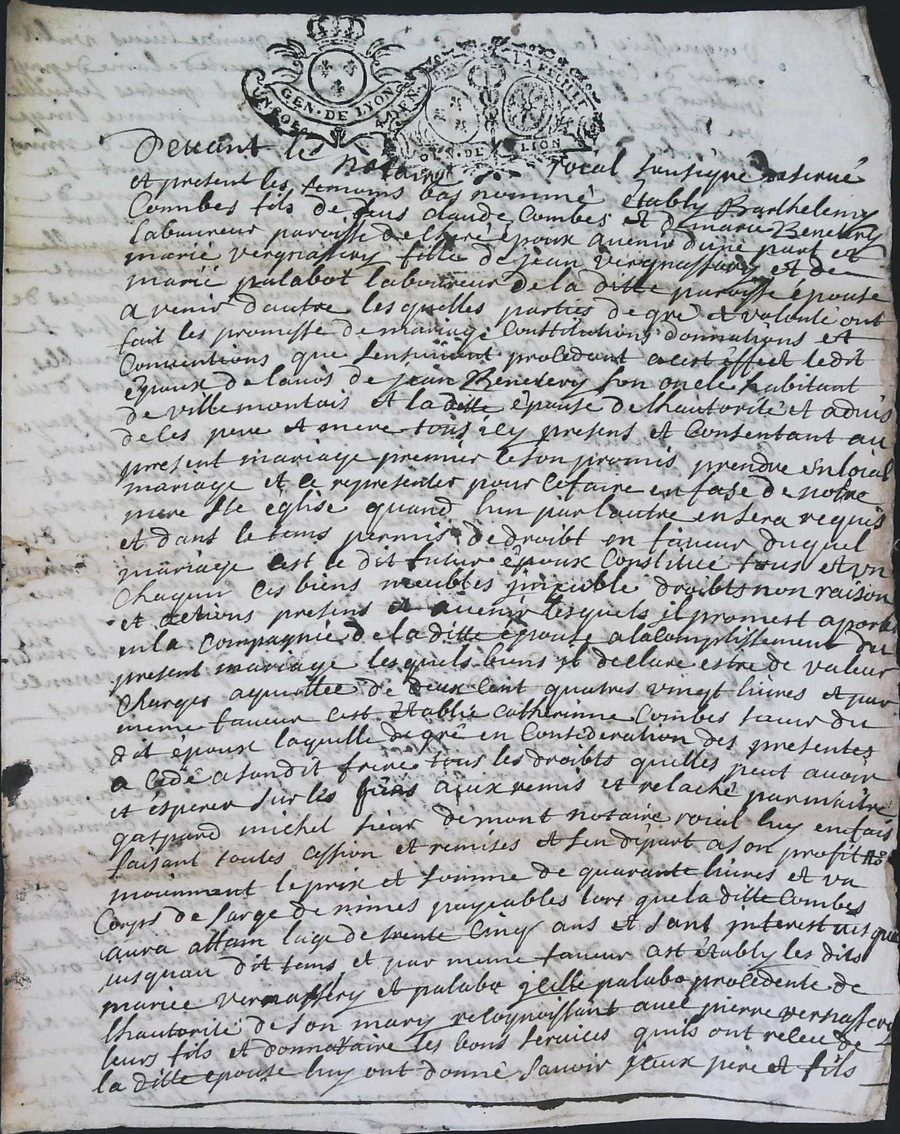 GEN. DE LYON
LA FEUILLE
DE LION
Devant le notaire roial soussigné reservé
et present les temoins bas nommé étably Barthelemy
Combes fils de feus claude Combes et de marie Benetery
laboureur paroisse de cheré époux avenir dune part et
marie vergnassery fille de jean vergnassery et de
marié palabot laboureur de la ditte paroisse épouse
a venir dautre lesquelles parties de gré et volonté ont
fait les promesse de mariage Constitutions donnations et
Conventions que sensuivent procedant a cest effect ledit
époux de lavis de jean Benetery son oncle habitant
de villemontois et la ditte épouse de lhautorité et advis
de ces pere et mere tous icy presens et Consentant au
present mariage premier ce son promis prendre en loial
mariage et ce representer pour ce faire en fase de notre
mere Ste église quand lun par lautre en sera requis
et dans le tems permis de droibt en faveur duquel
mariage cest le dit futur époux Constitué tous et un
chaqun ces biens meubles jmeuble droibts non raison
et actions presens et avenir lesquels il promest aporter
en la Compagnie de la ditte épouse a lacomplissement du
present mariage lesquels biens il declare estre de valeur
Charges aquittée de deux Cent quatres vingt livres et par
meme faveur cest établie Catherinne Combes sœur du
dit epoux laquelle de gré en Consideration des presentes
a cedé a sondit frere tous les droibts quelles peut avoir
et esperer sur les biens a eux remis et relaché par maitre
gaspard michel sieur demont notaire roial luy en fais
faisant toutes cession et remises et sen départ a son profit
moiennent le prix et somme de quarante livres et un
Corps de sarge de nimes payeables lors que la ditte Combes
aura attain lage de trente Cinq ans et sant interest
jusquau dit tems et par meme faveur cest étably les dits
mariée vernassery et palabo jcelle palabo procedente de
lhautorité de son mary recognoissant avec pierre vernassery
leurs fils et donnataire les bons services quils ont receu de
la ditte epouse luy ont donné savoir jceux pere et fils